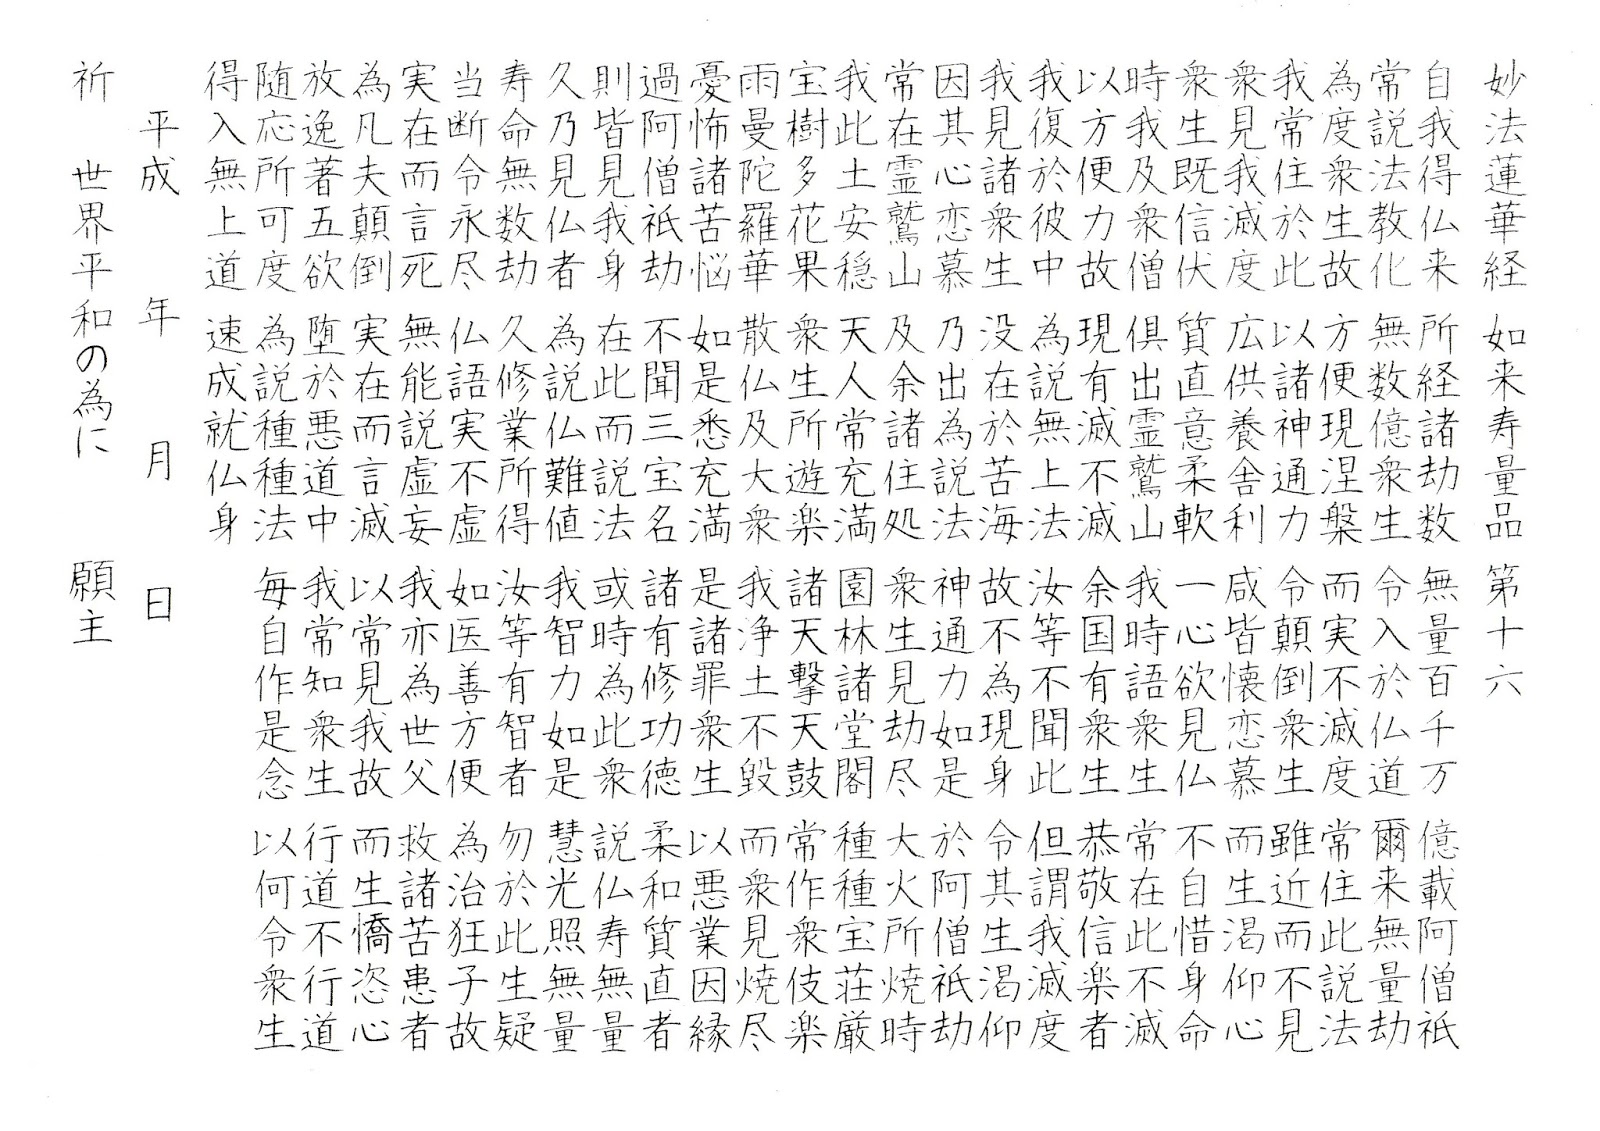 妙法蓮華経 如来寿量品 第十六
自我得仏来 所経諸劫数 無量百千万 億載阿僧祇
常説法教化 無数億衆生 令入於仏道 爾来無量劫
為度衆生故 方便現涅槃 而実不滅度 常住此説法
我常住於此 以諸神通力 令顛倒衆生 雖近而不見
衆見我滅度 広供養舎利 咸皆懐恋慕 而生渇仰心
衆生既信伏 質直意柔軟 一心欲見仏 不自惜身命
時我及衆僧 倶出霊鷲山 我時語衆生 常在此不滅
以方便力故 現有滅不滅 余国有衆生 恭敬信楽者
我復於彼中 為説無上法 汝等不聞此 但謂我滅度
我見諸衆生 没在於苦海 故不為現身 令其生渇仰
因其心恋慕 乃出為説法 神通力如是 於阿僧祇劫
常在霊鷲山 及余諸住処 衆生見劫尽 大火所焼時
我此土安穏 天人常充満 園林諸堂閣 種種宝荘厳
宝樹多花果 衆生所遊楽 諸天撃天鼓 常作衆伎楽
雨曼陀羅華 散仏及大衆 我浄土不毀 而衆見焼尽
憂怖諸苦悩 如是悉充満 是諸罪衆生 以悪業因縁
過阿僧祇劫 不聞三宝名 諸有修功徳 柔和質直者
則皆見我身 在此而説法 或時為此衆 説仏寿無量
久乃見仏者 為説仏難値 我智力如是 慧光照無量
寿命無数劫 久修業所得 汝等有智者 勿於此生疑
当断令永尽 仏語実不虚 如医善方便 為治狂子故
実在而言死 無能説虚妄 我亦為世父 救諸苦患者
為凡夫顛倒 実在而言滅 以常見我故 而生憍恣心
放逸著五欲 堕於悪道中 我常知衆生 行道不行道
随応所可度 為説種種法 毎自作是念 以何令衆生
得入無上道 速成就仏身
平成 年 月 日
祈 世界平和の為に 願主